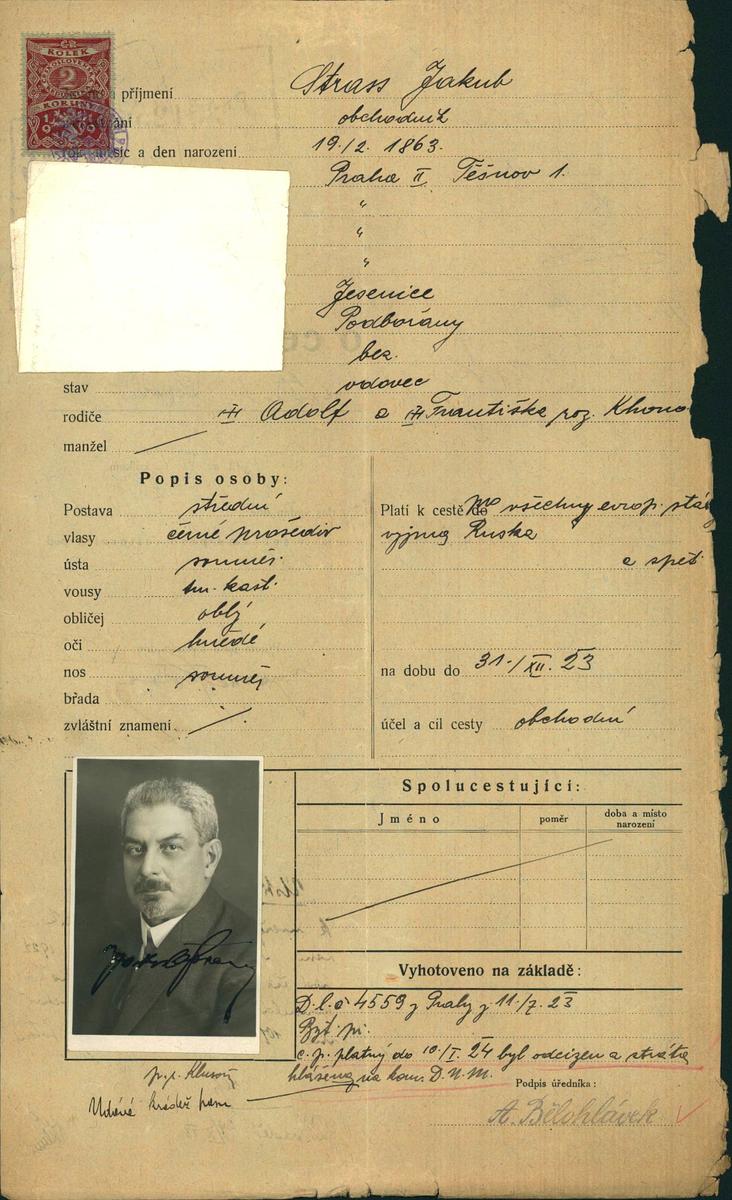 KOLEK
2
KORUNY
příjmení Strass Jakub
obchodník
a den narození 19/2. 1863.
Praha II Těšnov 1.
"
"
"
Jesenice
Podbořany
bez.
stav vdovec
rodiče Adolf a Františka roz.
manžel
Popis osoby:
Postava střední
vlasy černé prošediv
ústa souměr.
vousy tm. kašt.
obličej oblý
oči hnědé
nos souměr
brada
zvláštní znamení
Platí k cestě do pro všechny evrop. stá
vyjma Ruska
a zpět.
na dobu do 31./XII. 23
účel a cíl cesty obchodní
Spolucestující:
Jméno
poměr
doba a místo
narození
Vyhotoveno na základě:
D. l. č 4559 z Prahy z 11/7. 23
c. p. platný do 10/I. 24 byl odcizen a ztráta
hlášena na kom. D. N. M.
Podpis úředníka:
A. Bělohlávek
krádež